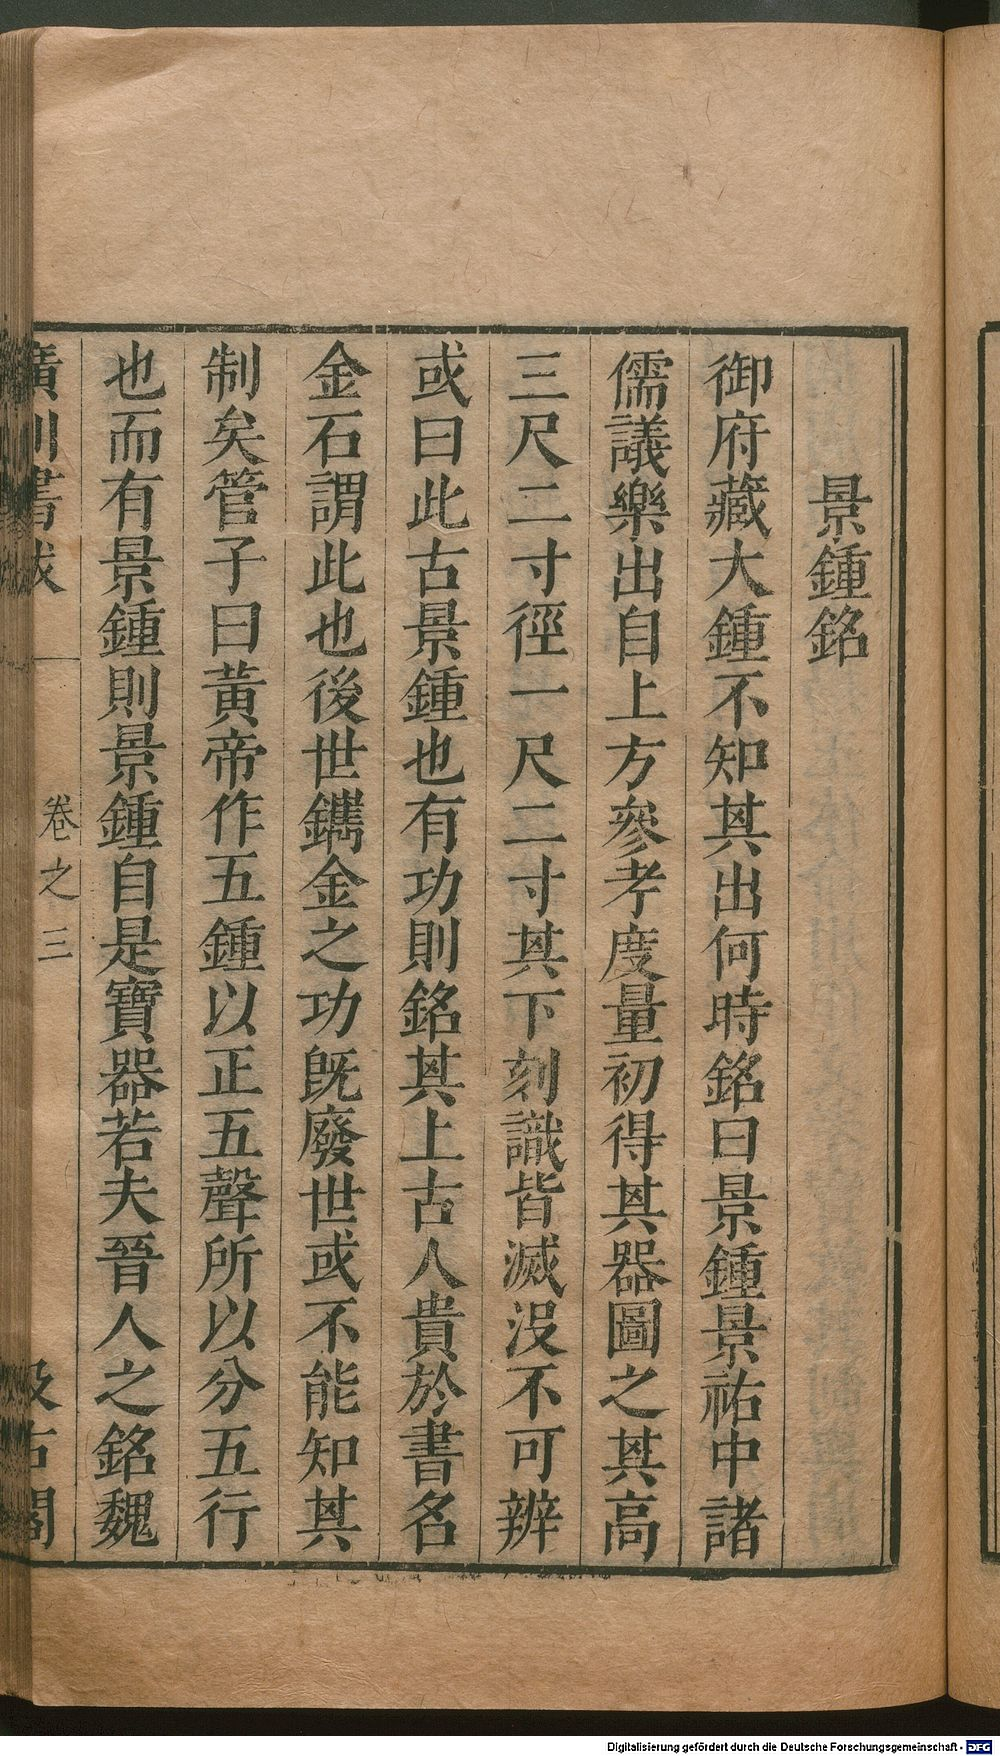 景鍾銘
御府藏大鍾不知其出何時銘曰景鍾景祐中諸
儒議樂出自上方參考度量初得其器圖之其高
三尺二寸徑一尺二寸其下刻識皆滅沒不可辨
或曰此古景鍾也有功則銘其上古人貴於書名
金石謂此也後世鐫金之功既廢世或不能知其
制矣管子曰黃帝作五鍾以正五聲所以分五行
也而有景鍾則景鍾自是寶器若夫晉人之銘魏
廣川書跋
卷之三
汲古閣
Digitalisierung gefördert durch die Deutsche Forschungsgemeinschaft - DFG